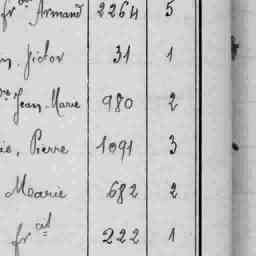 fr Armand 2264 5
Victor 31 1
Jean Marie 980 2
Pierre 1091 3
Marie 682 2
fr cad 222 1